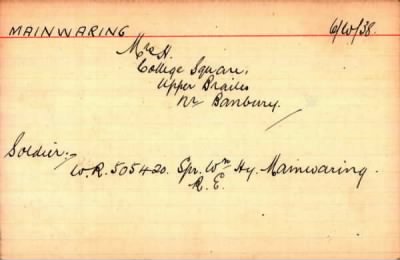 MAINWARING 6/W/38.
Mrs H.
College Square,
Upper Brailes
Nr Banbury.
Soldier:
W.R. 505420. Spr. Wm Hy. Mainwaring.
R.E.